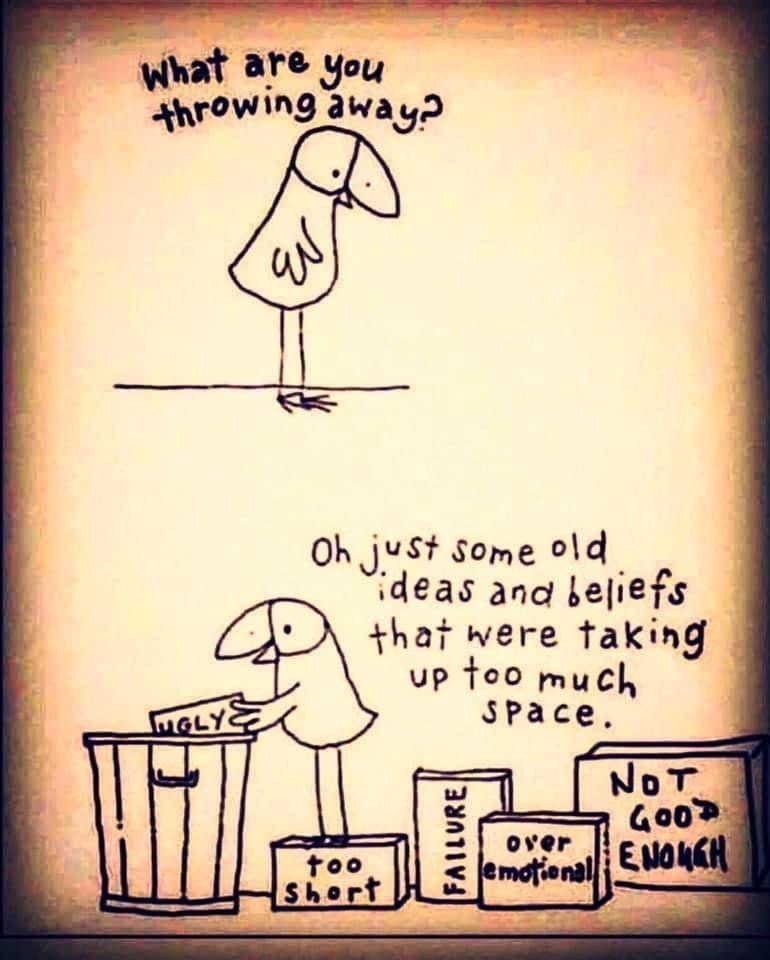 What are you
throwing away?
Oh just some old
ideas and beliefs
that were taking
up too much
space.
UGLY
too
short
FAILURE
over
emotional
NOT
GOOD
ENOUGH